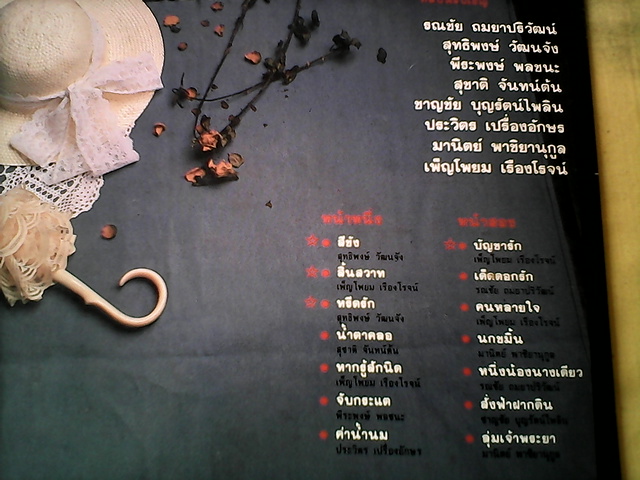 รณชัย ถมยาปริวัฒน์
สุทธิพงษ์ วัฒนจัง
พีระพงษ์ พลชนะ
สุชาติ จันทน์ต้น
ชาญชัย บุญรัตน์ไพลิน
ประวิตร เปรื่องอักษร
มานิตย์ พาชิยานุกูล
เพ็ญโพยม เรืองโรจน์
หน้าหนึ่ง
สีชัง
สุทธิพงษ์ วัฒนจัง
สิ้นสวาท
เพ็ญโพยม เรืองโรจน์
หรีดรัก
สุทธิพงษ์ วัฒนจัง
น้ำตาคลอ
สุชาติ จันทน์ต้น
หากรู้สักนิด
เพ็ญโพยม เรืองโรจน์
จับกระแต
พีระพงษ์ พลชนะ
ค่าน้ำนม
ประวิตร เปรื่องอักษร
หน้าสอง
บัญชารัก
เพ็ญโพยม เรืองโรจน์
เด็ดดอกรัก
รณชัย ถมยาปริวัฒน์
คนหลายใจ
เพ็ญโพยม เรืองโรจน์
นกขมิ้น
มานิตย์ พาชิยานุกูล
หนึ่งน้องนางเดียว
รณชัย ถมยาปริวัฒน์
สั่งฟ้าฝากดิน
ชาญชัย บุญรัตน์ไพลิน
ลุ่มเจ้าพระยา
มานิตย์ พาชิยานุกูล